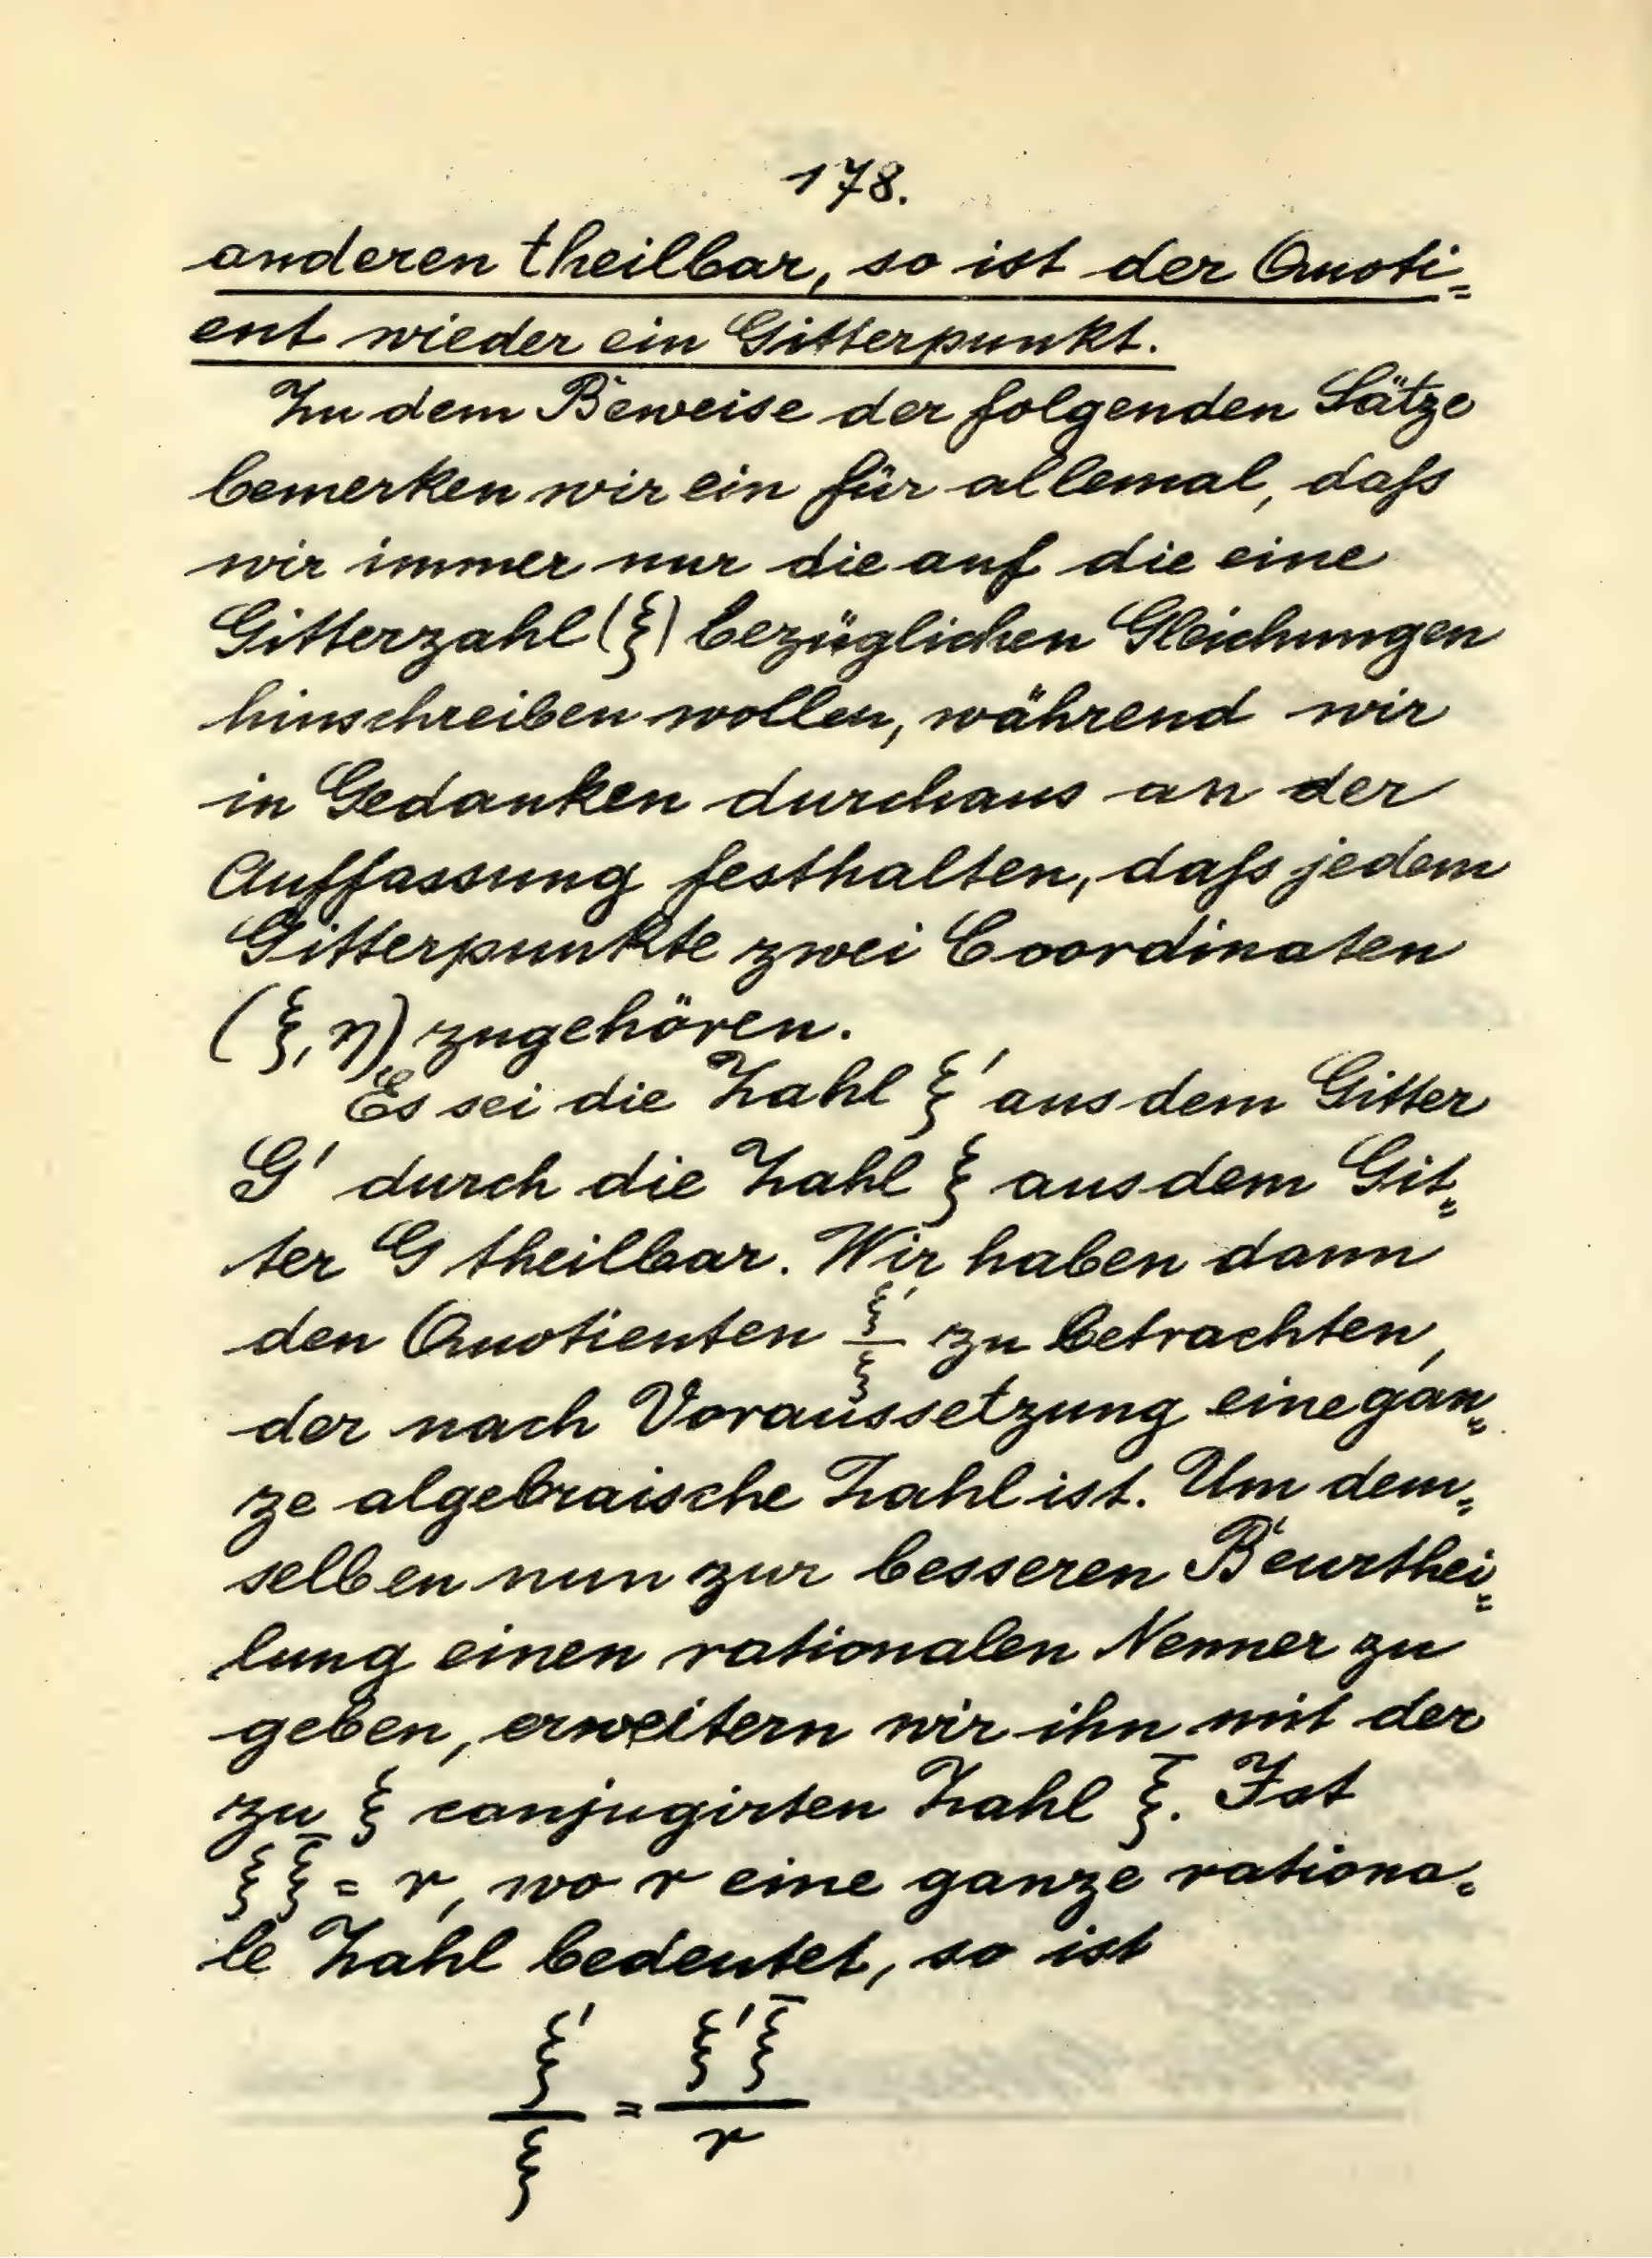 178.
anderen theilbar, so ist der Quoti=
ent wieder ein Gitterpunkt.
Zu dem Beweise der folgenden Sätze
bemerken wir ein für allemal, daſs
wir immer nur die auf die eine
Gitterzahl (ξ) bezüglichen Gleichungen
hinschreiben wollen, während wir
in Gedanken durchaus an der
Auffassung festhalten, daſs jedem
Gitterpunkte zwei Coordinaten
(ξ, η) zugehören.
Es sei die Zahl ξ' aus dem Gitter
G' durch die Zahl ξ aus dem Git=
ter G theilbar. Wir haben dann
den Quotienten ξ'/ξ zu betrachten,
der nach Voraussetzung eine gan=
ze algebraische Zahl ist. Um dem=
selben nun zur besseren Beurthei=
lung einen rationalen Nenner zu
geben, erweitern wir ihn mit der
zu ξ conjugirten Zahl ξ̄. Ist
ξ ξ̄ = r, wo r eine ganze rationa=
le Zahl bedeutet, so ist
ξ'/ξ = ξ'ξ̄/r